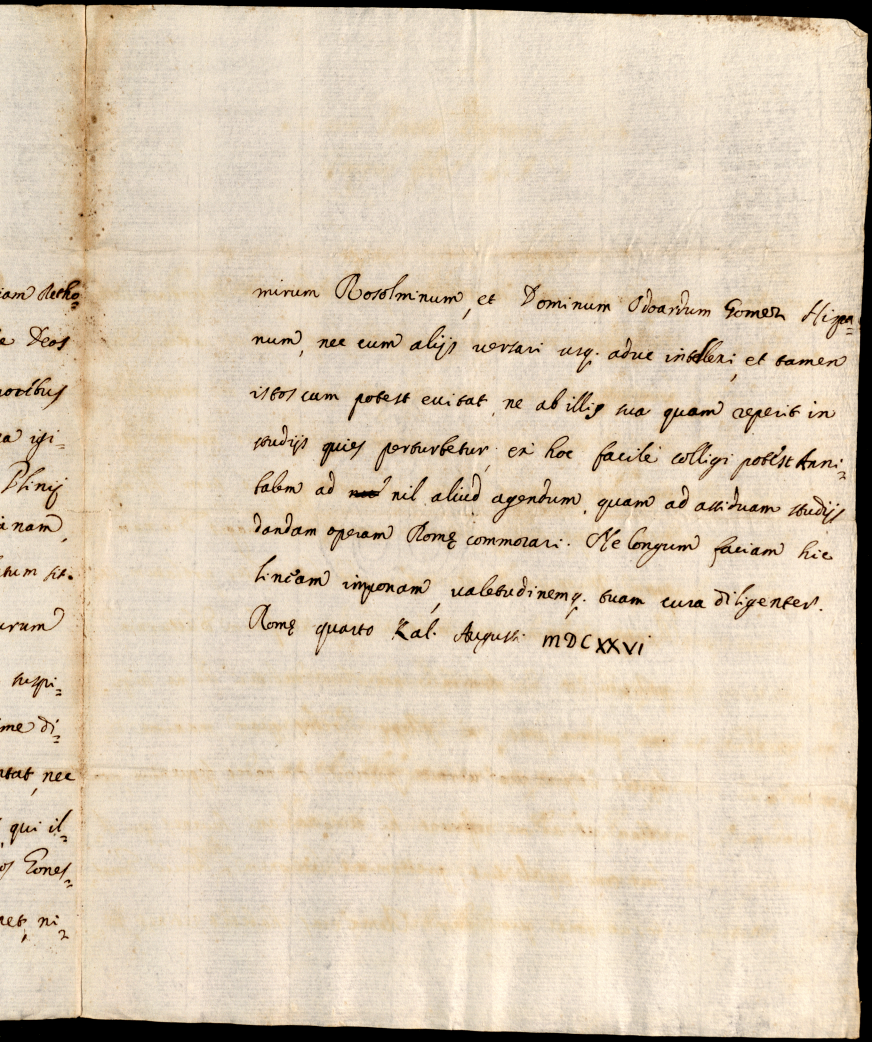 iam Retho=
e Deos
vocibus
a igi-
Plinij
nam,
tum sit.
urum
suspi=
me di=
tat, nec
qui il=
os Cones=
net, ni=
mirum Rosolminum, et Dominum Odoardum Gomez Hispa=
num, nec cum alijs versari usq. aduc intellexi, et tamen
istos cum potest euitat, ne ab illis sua quam reperit in
studijs quies perturbetur, ex hoc facilè colligi potest Anni=
balem ad nil aliud agendum, quam ad assiduam studijs
dandam operam Romę commorari. Ne longum faciam hic
lineam imponam, ualetudinemq. tuam cura diligenter.
Romę quarto Kal. Augusti MDCXXVI